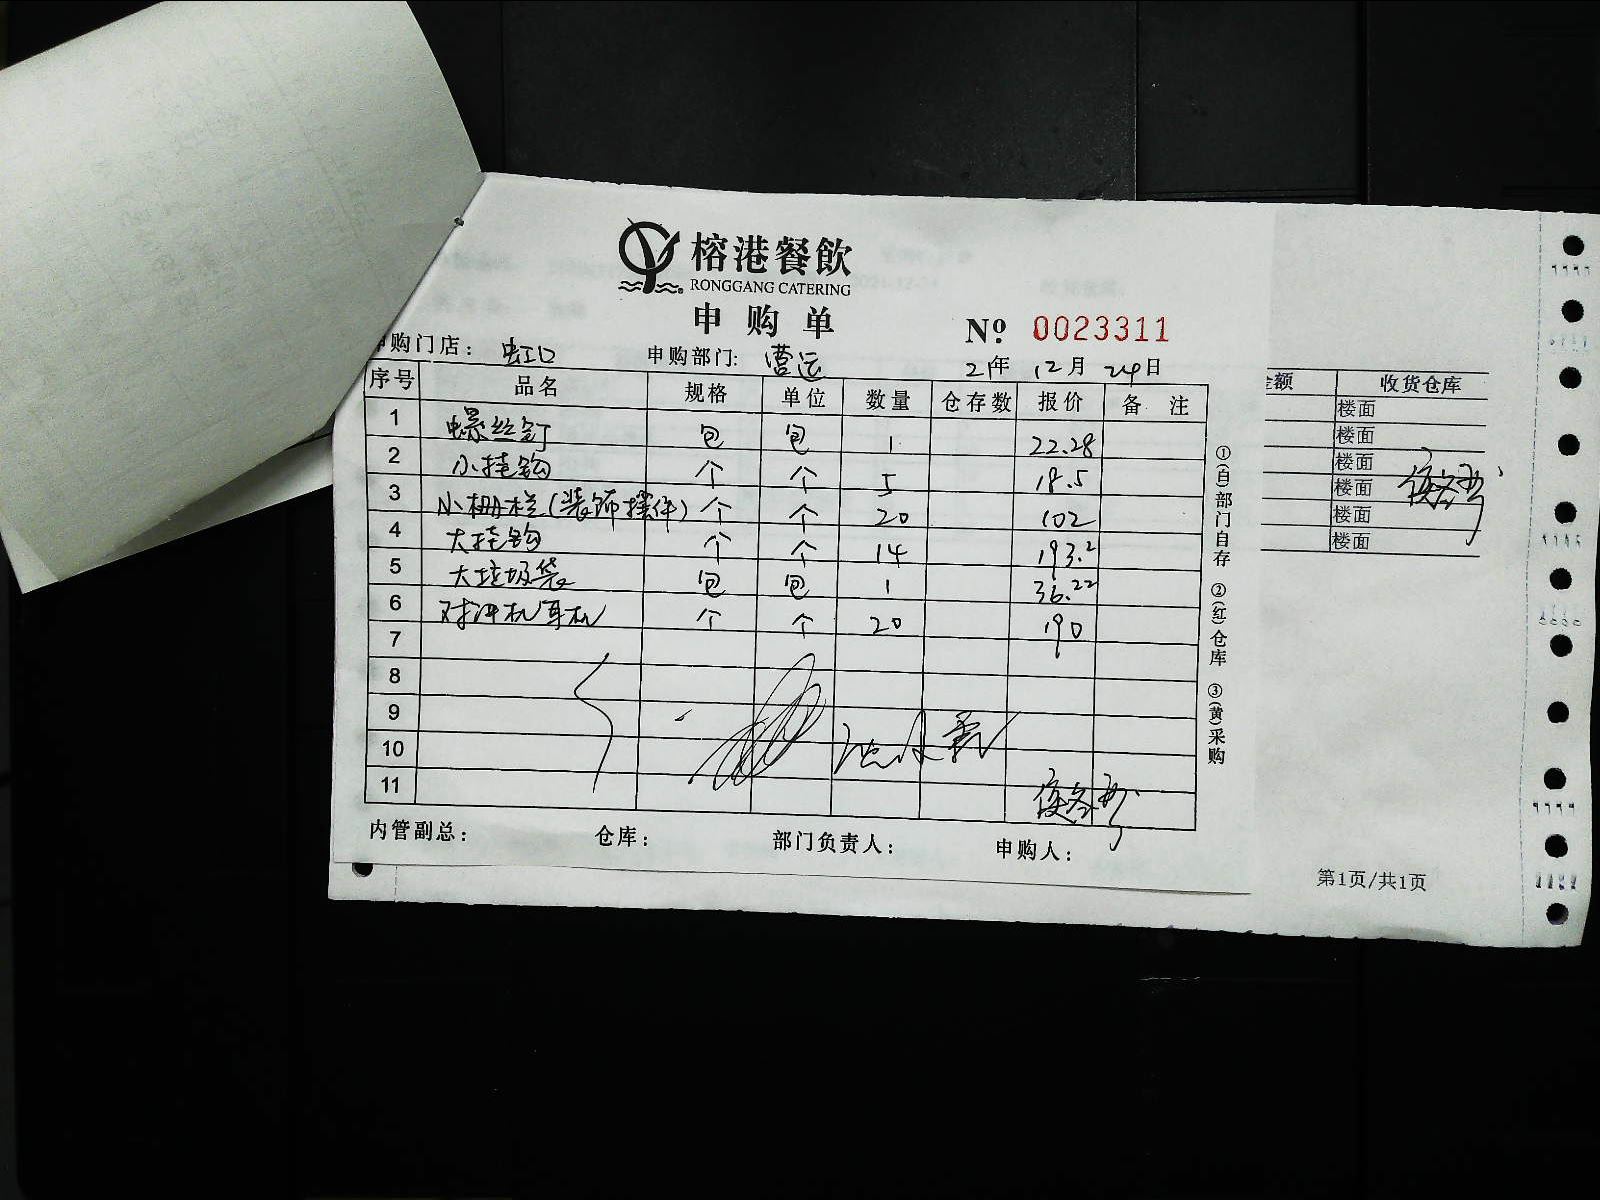 榕港餐飲
RONGGANG CATERING
申购单
No. 0023311
申购门店： 虹口 申购部门: 营运 21年 12月 24日
序号 品名 规格 单位 数量 仓存数 报价 备注
1 螺丝钉 包 包 1 22.28
2 小挂钩 个 个 5 18.5
3 小栅栏(装饰摆件) 个 个 20 102
4 大挂钩 个 个 14 193.2
5 大垃圾袋 包 包 1 36.22
6 对讲机耳机 个 个 20 190
7
8
9
10
11
内管副总： 仓库： 部门负责人： 申购人：
①(白)部门自存 ②(红)仓库 ③(黄)采购
金额 收货仓库
楼面
楼面
楼面
楼面
楼面
楼面
第1页/共1页